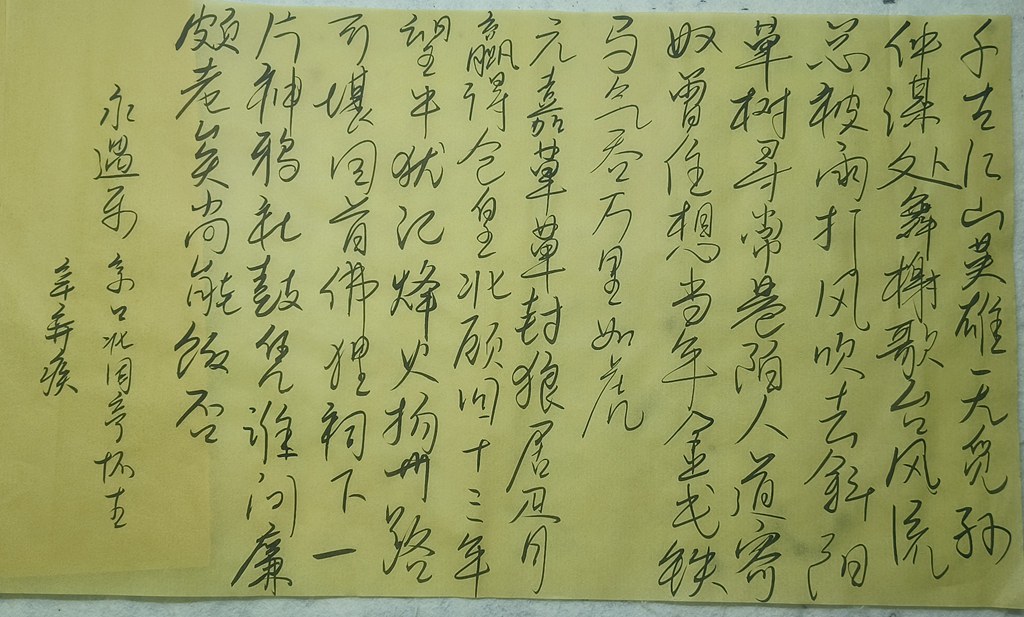 千古江山英雄无觅孙
仲谋处舞榭歌台风流
总被雨打风吹去斜阳
草树寻常巷陌人道寄
奴曾住想当年金戈铁
马气吞万里如虎
元嘉草草封狼居胥
赢得仓皇北顾四十三年
望中犹记烽火扬州路
可堪回首佛狸祠下一
片神鸦社鼓凭谁问廉
颇老矣尚能饭否
永遇乐 京口北固亭怀古
辛弃疾